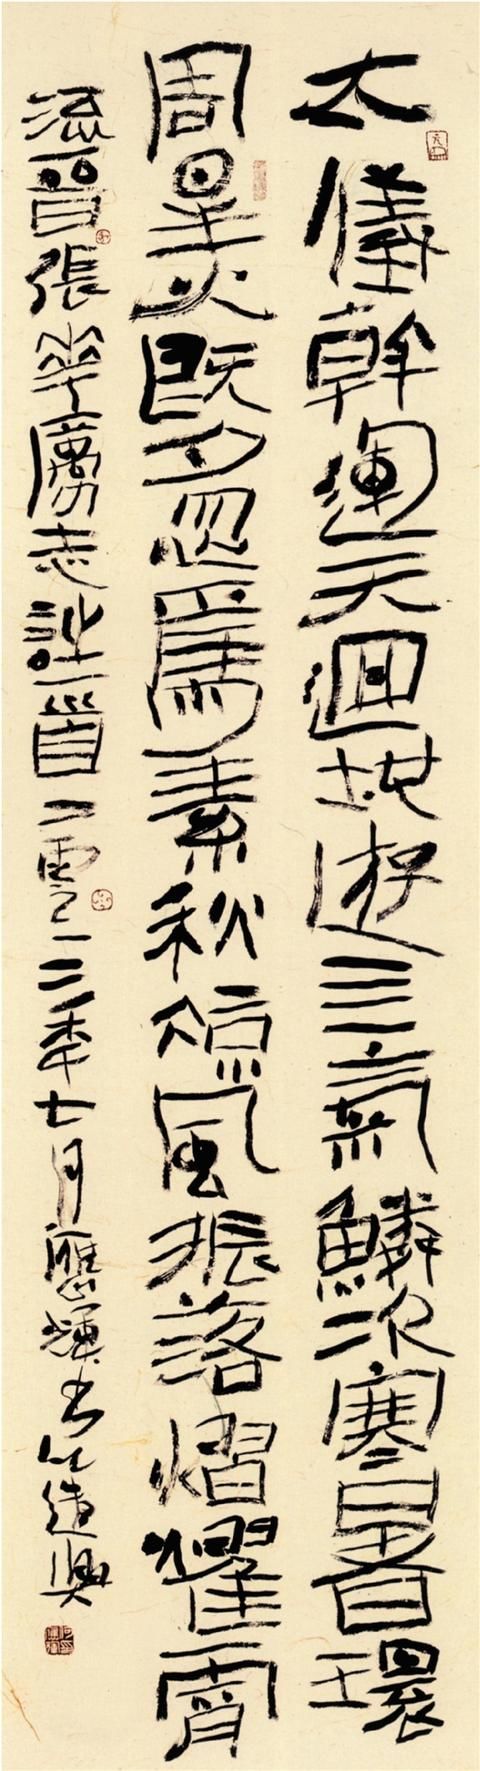 太儀幹運天迴地遊亖氣鱗次寒暑環
周星火既夕忽焉素秋涼風振落熠燿霄
流晉張華勵志詩一首二零二三年七月應輝書以遣興